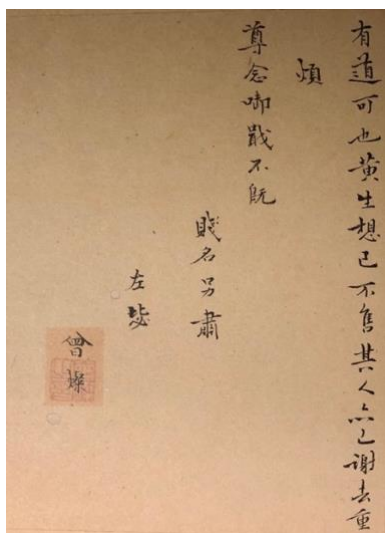 有道可也黄生想已不售其人亦已謝去重
煩
尊念啣戢不既
賤名另肅
左
曾燦